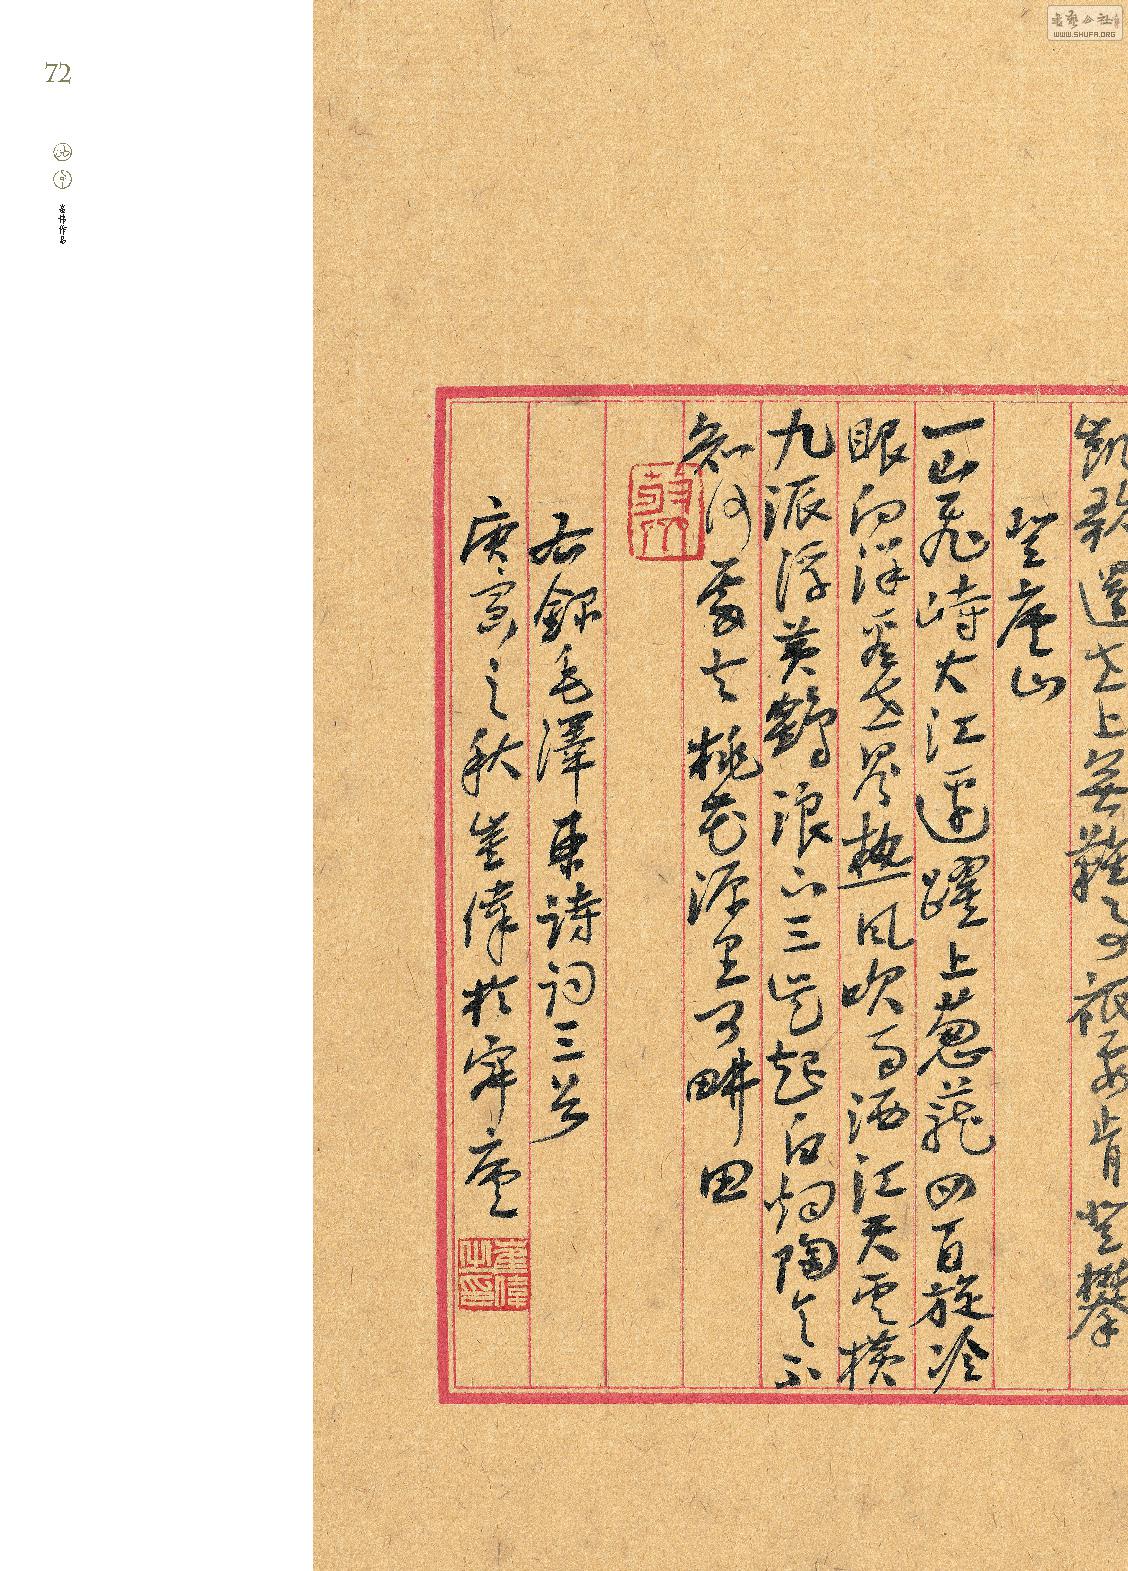 書藝公社
WWW.SHUFA.ORG
凱歌還世上無難事祇要肯登攀
登廬山
一山飛峙大江邊躍上葱蘢四百旋冷
眼向洋看世界熱風吹雨洒江天雲橫
九派浮黃鶴浪下三吳起白烟陶令不
知何處去桃花源里可畊田
右錄毛澤東詩詞三首
庚寅之秋崔偉於寧廬
崔偉之印
72
崔伟作品